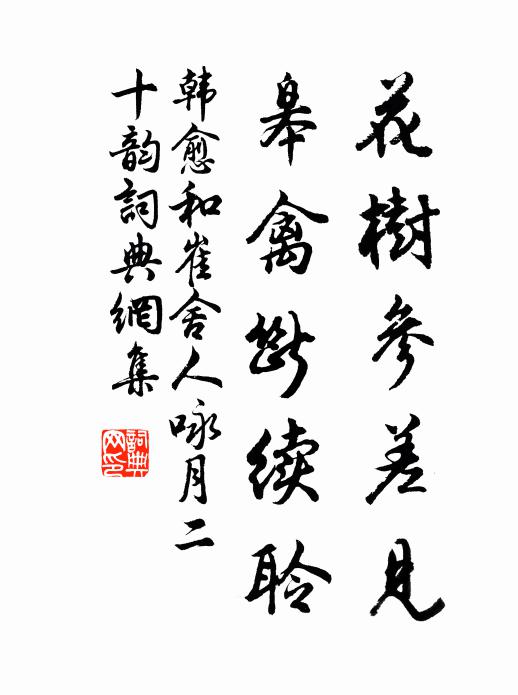 花樹參差見
皋禽斷續聆
韩愈和崔舍人咏月二
十韵詞典網集
詞典
网印